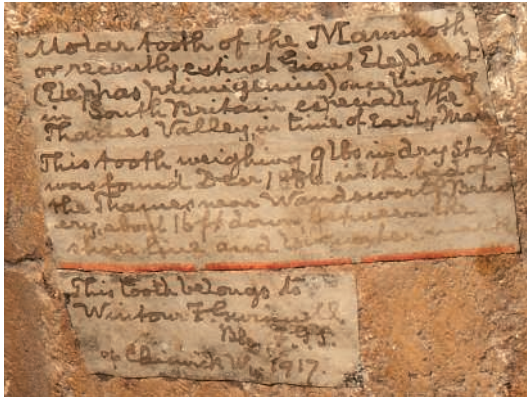 Molar tooth of the Mammoth
or recently extinct Giant Elephant
(Elephas primigenius) once living
in South Britain especially the
Thames Valley in time of Early Man
This tooth weighing 9 lbs in dry state
was found Decr in the bed of
the Thames near Wandsworth Brew
ery, about 16 ft down between the
shore line and low water mark
This tooth belongs to
Wintour F.
of Chiswick W. 1917.